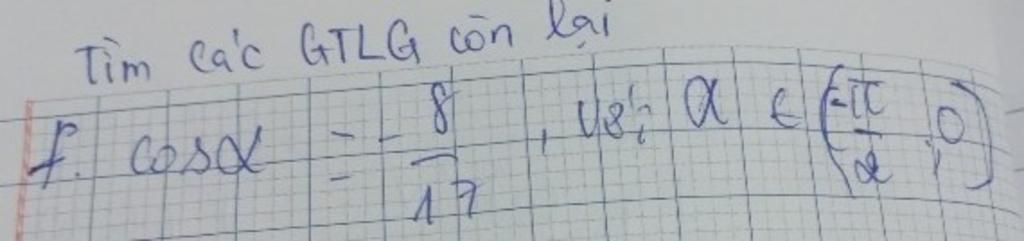 Tìm các GTLG còn lại
f. cosα = -8/17, với α ∈ (-π/2; 0)